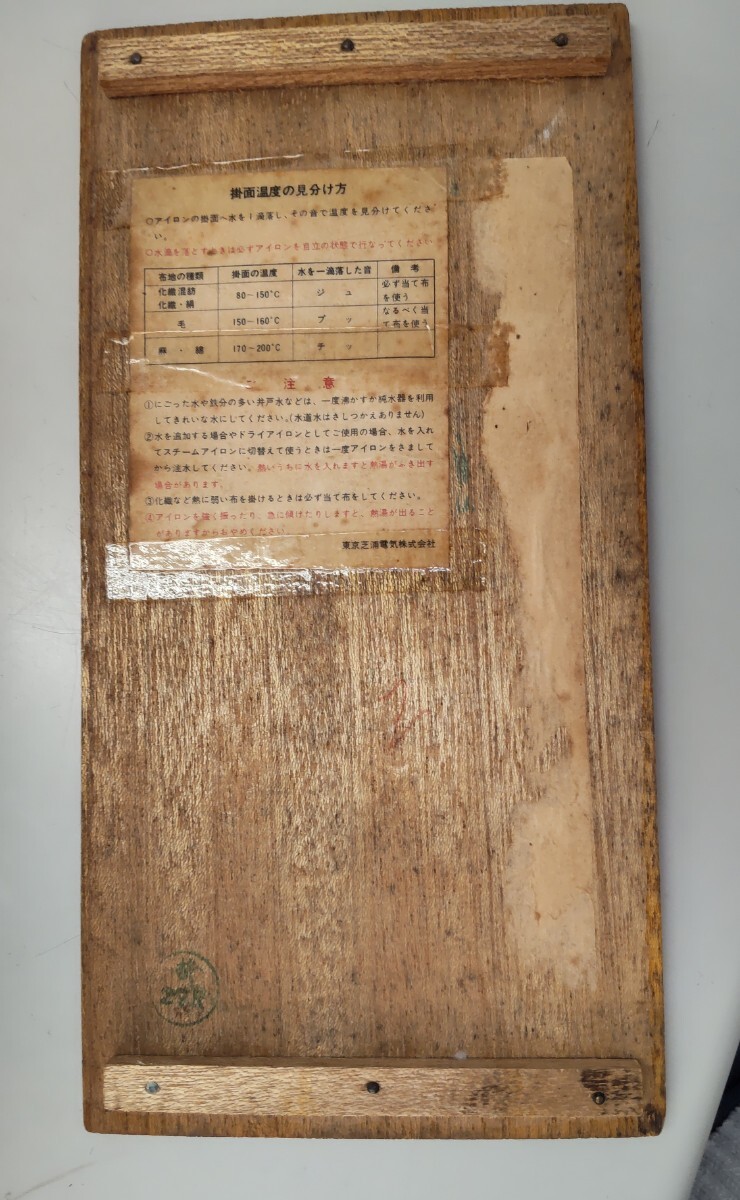 掛面温度の見分け方
○アイロンの掛面へ水を1滴落し、その音で温度を見分けてくださ
い。
○水滴を落とすときは必ずアイロンを自立の状態で行なってください
布地の種類 掛面の温度 水を一滴落した音 備考
化繊混紡 化繊・絹 80～150℃ ジュ 必ず当て布を使う
毛 150～160℃ プッ なるべく当て布を使う
麻・綿 170～200℃ チッ
ご注意
①にごった水や鉄分の多い井戸水などは、一度沸かすか純水器を利用
してきれいな水にしてください。(水道水はさしつかえありません)
②水を追加する場合やドライアイロンとしてご使用の場合、水を入れ
てスチームアイロンに切替えて使うときは一度アイロンをさまして
から注水してください。熱いうちに水を入れますと熱湯がふき出す
場合があります。
③化繊など熱に弱い布を掛けるときは必ず当て布をしてください。
④アイロンを強く振ったり、急に傾けたりしますと、熱湯が出ること
がありますからおやめください。
東京芝浦電気株式会社